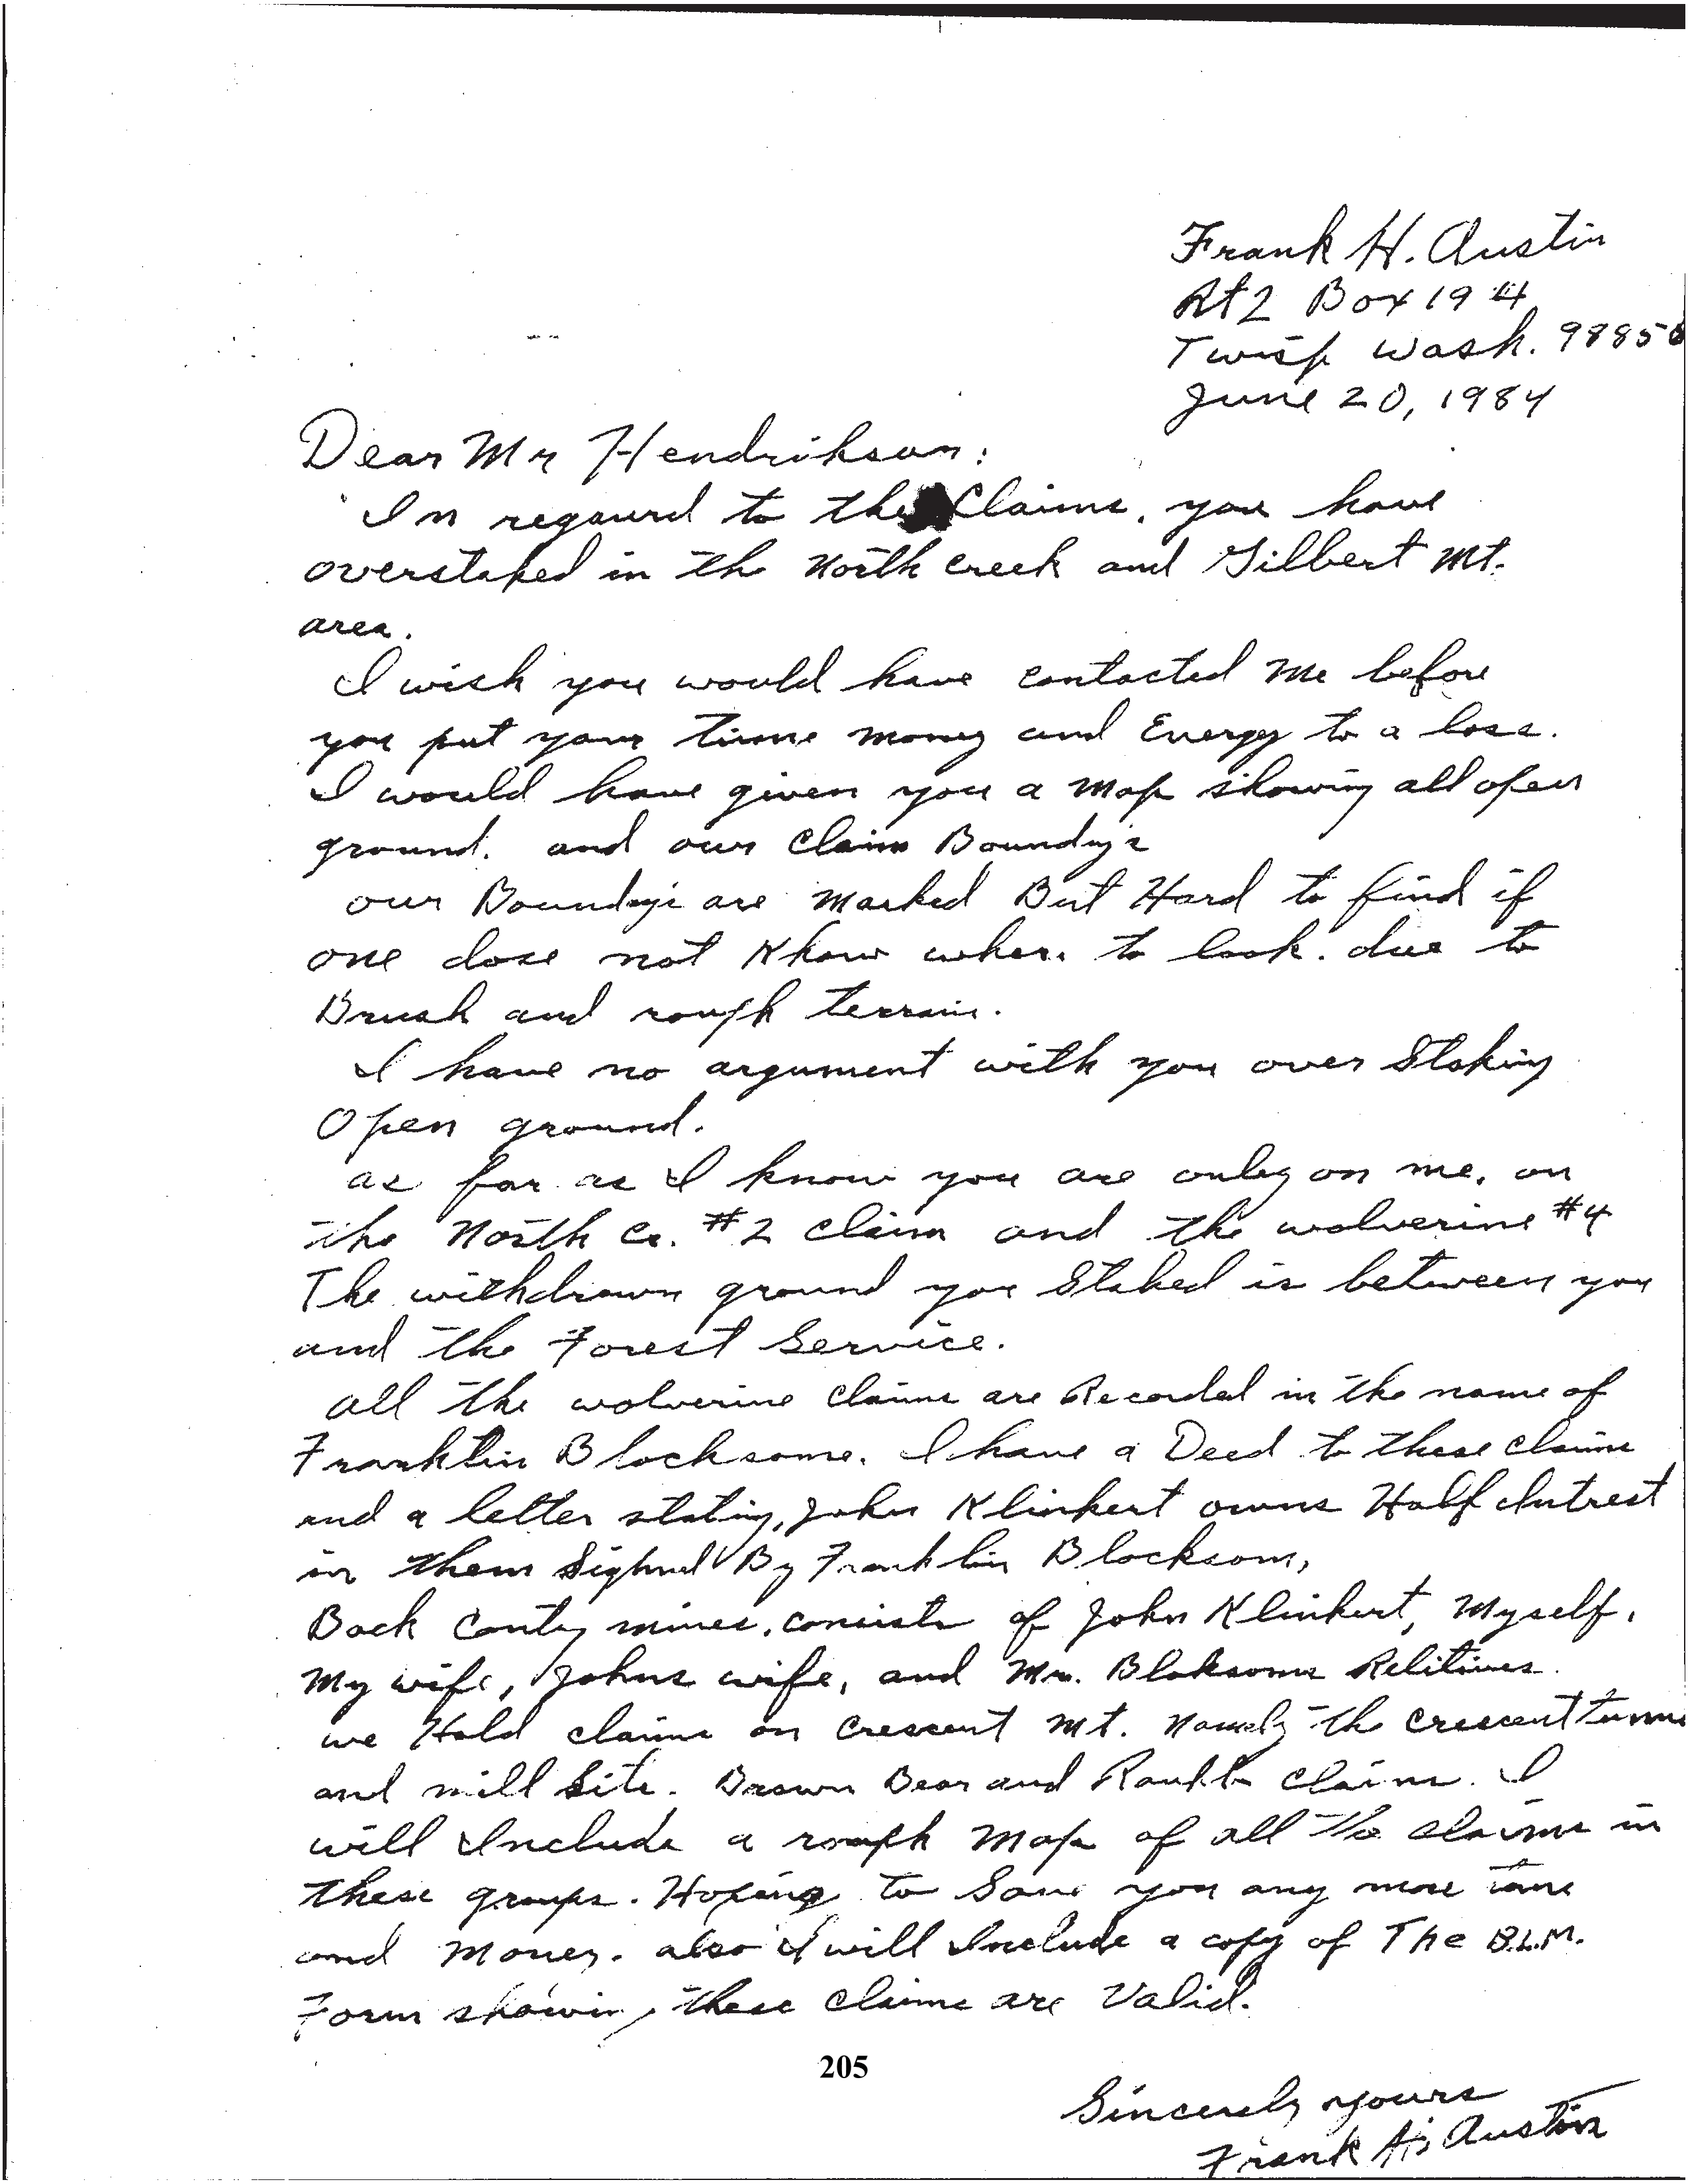 Frank H. Austin
Rt 2 Box 194
Twisp Wash. 98856
June 20, 1984
Dear Mr Hendrikson:
In regaurd to the Claims, you have
overstaked in the North Creek and Gilbert Mt.
area.
I wish you would have contacted me before
you put your time money and Energy to a loss.
I would have given you a map showing all open
ground. and our Claim Boundys
our Boundys are marked But Hard to find if
one dose not Know where to look. due to
Brush and rough terrain.
I have no argument with you over Staking
Open ground.
as far as I know you are only on me, on
the North Cr. #2 claim and the wolverine #4
The withdrawn ground you Staked is between you
and the Forest Service.
all the wolverine claims are Recorded in the name of
Franklin Blocksome. I have a Deed to these claims
and a letter stating, John Klinkert owns Half Intrest
in them Sighned By Franklin Blocksom,
Back Conty mines, consists of John Klinkert, Myself,
My wife, Johns wife, and Mr. Bloksoms Relitives.
we Hold claims on Crescent Mt. Namely the Crescent
and mill Site. Brown Bear and claims. I
will Include a rough map of all the claims in
these groups. Hoping to Save you any more time
and Money. also I will Include a copy of The B.L.M.
Form showing these claims are Valid.
205
Sincerely yours
Frank H. Austin